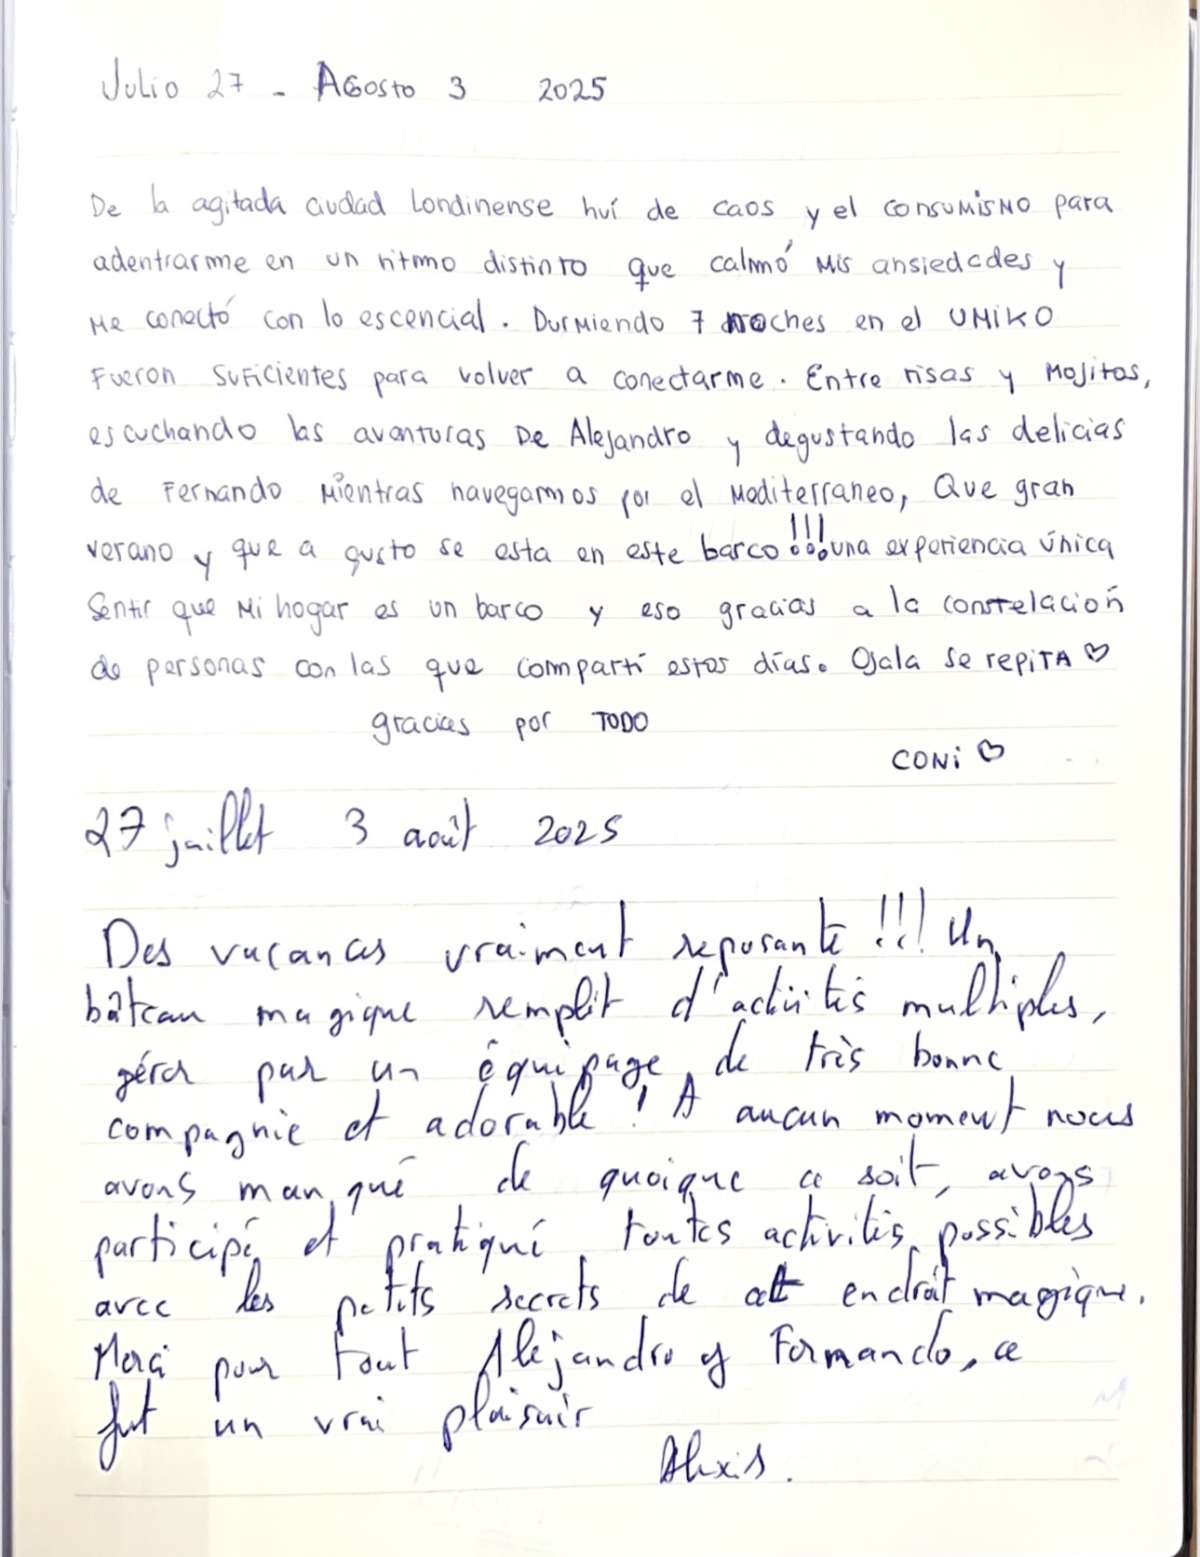 Julio 27 - Agosto 3 2025
De la agitada ciudad Londinense huí de caos y el consumismo para
adentrarme en un ritmo distinto que calmó mis ansiedades y
me conectó con lo escencial. Durmiendo 7 noches en el UMIKO
Fueron suficientes para volver a conectarme. Entre risas y Mojitos,
escuchando las aventuras De Alejandro y degustando las delicias
de Fernando Mientras navegamos por el Mediterraneo, Que gran
verano y que a gusto se esta en este barco!!! una experiencia única
Sentir que Mi hogar es un barco y eso gracias a la constelación
de personas con las que compartí estos días. Ojala se repita ♡
gracias por TODO
CONI ♡
27 juillet 3 août 2025
Des vacances vraiment reposante !!! Un
bâteau magique remplit d'activités multiples,
gérer par un équipage de très bonne
compagnie et adorable ! A aucun moment nous
avons manqué de quoique ce soit, avons
participé et pratiqué toutes activités possibles
avec les petits secrets de cet endroit magique.
Merci pour tout Alejandro y Fernando, ce
fut un vrai plaisir
Alexis.